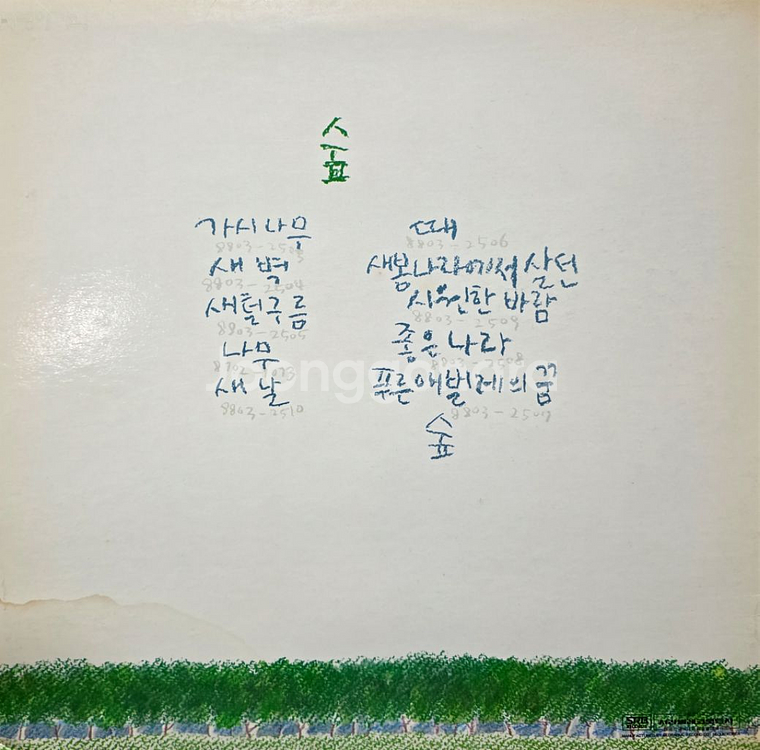 숲
가시나무
8803-2503
새벽
8803-2504
새털구름
8803-2505
나무
새날
8803-2510
때
8803-2506
새봄나라에서 살던
시원한 바람
8803-2509
좋은 나라
푸른 애벌레의 꿈
8803-2507
숲
SRB